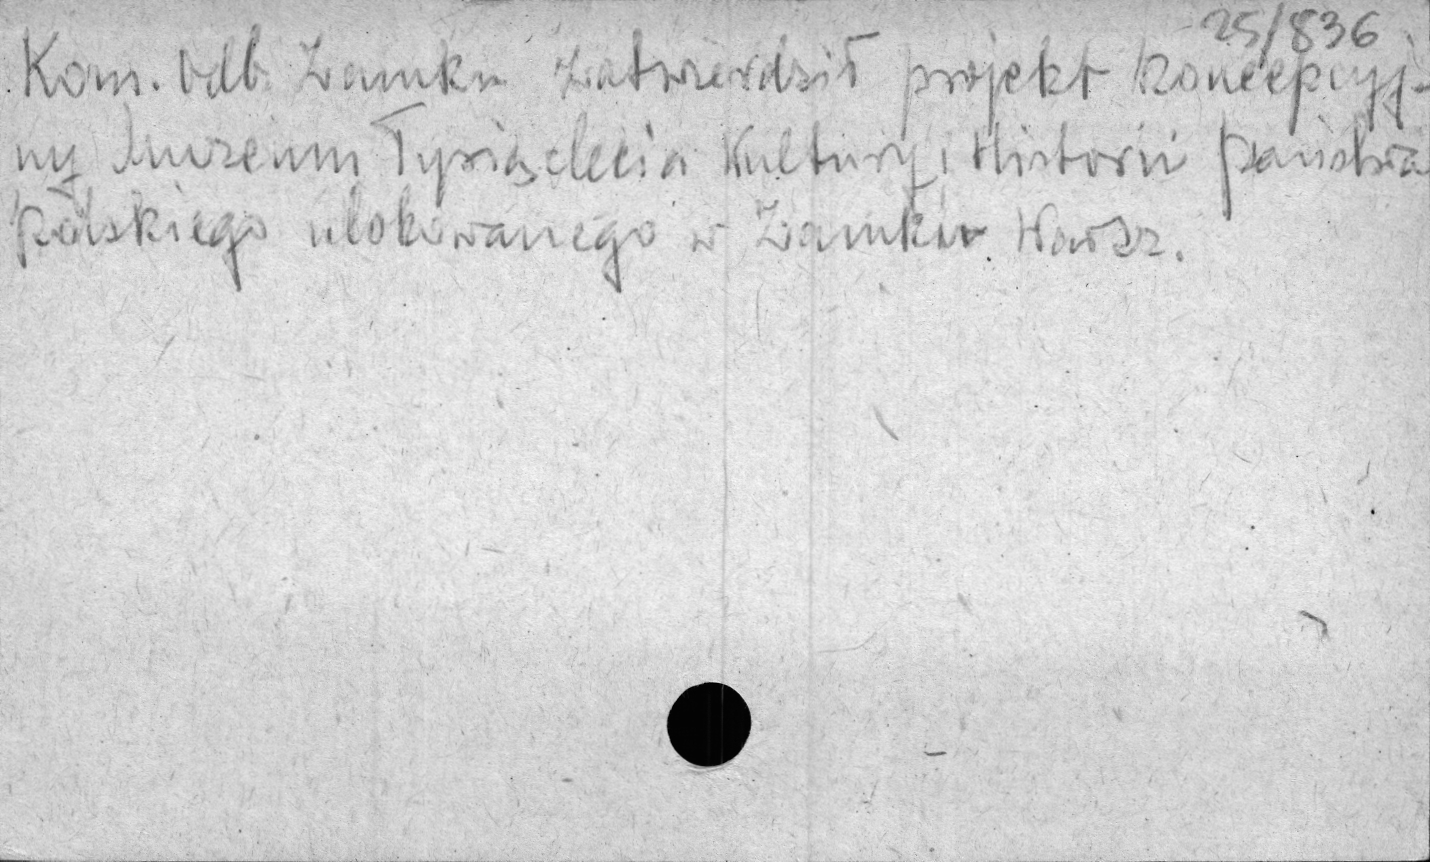 25/836
Kom. Odb. Zamku zatwierdził projekt koncepcyj-
ny Muzeum Tysiąclecia Kultury i Historii Państwa
Polskiego ulokowanego w Zamku Warsz.